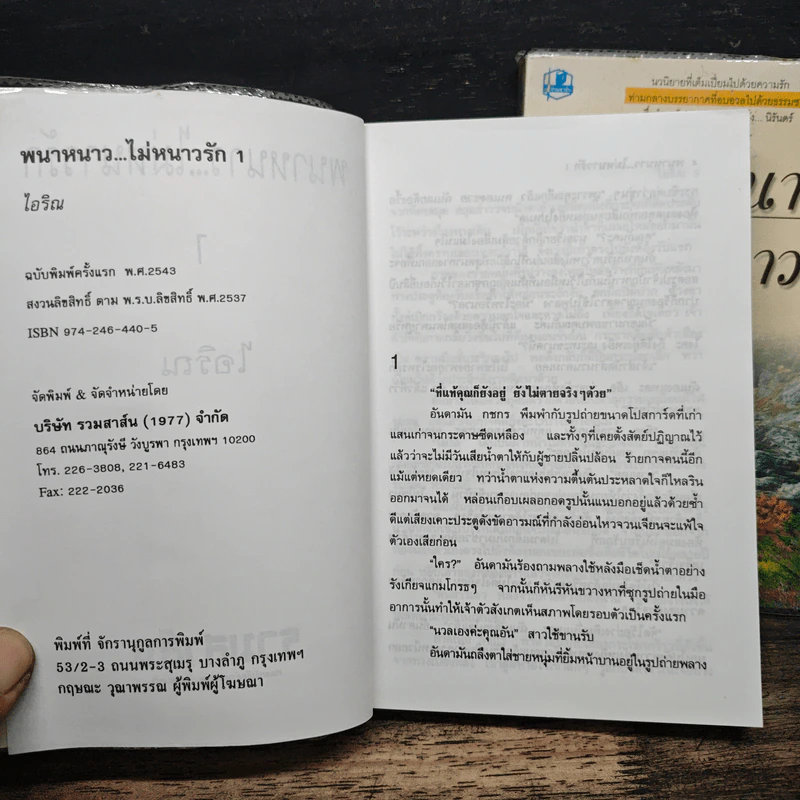 พนาหนาว...ไม่หนาวรัก 1
ไอริณ
ฉบับพิมพ์ครั้งแรก พ.ศ.2543
สงวนลิขสิทธิ์ ตาม พ.ร.บ.ลิขสิทธิ์ พ.ศ.2537
ISBN 974-246-440-5
จัดพิมพ์ & จัดจำหน่ายโดย
บริษัท รวมสาส์น (1977) จำกัด
864 ถนนภาณุรังษี วังบูรพา กรุงเทพฯ 10200
โทร. 226-3808, 221-6483
Fax: 222-2036
พิมพ์ที่ จักรานุกูลการพิมพ์
53/2-3 ถนนพระสุเมรุ บางลำภู กรุงเทพฯ
กฤษณะ วุฒาพรรณ ผู้พิมพ์ผู้โฆษณา
1
“ที่แท้คุณก็ยังอยู่ ยังไม่ตายจริงๆด้วย”
อันดามัน กชกร พึมพำกับรูปถ่ายขนาดโปสการ์ดที่เก่า
แสนเก่าจนกระดาษซีดเหลือง และทั้งๆที่เคยตั้งสัตย์ปฏิญาณไว้
แล้วว่าจะไม่มีวันเสียน้ำตาให้กับผู้ชายปลิ้นปล้อน ร้ายกาจคนนี้อีก
แม้แต่หยดเดียว ทว่าน้ำตาแห่งความตื้นตันประหลาดใจก็ไหลริน
ออกมาจนได้ หล่อนเกือบเผลอกอดรูปนั้นแนบอกอยู่แล้วด้วยซ้ำ
ดีแต่เสียงเคาะประตูดังขัดอารมณ์ที่กำลังอ่อนไหวจวนเจียนจะแพ้ใจ
ตัวเองเสียก่อน
“ใคร?” อันดามันร้องถามพลางใช้หลังมือเช็ดน้ำตาอย่าง
รังเกียจแกมโกรธๆ จากนั้นก็หันรีหันขวางหาที่ซุกรูปถ่ายในมือ
อาการนั้นทำให้เจ้าตัวสังเกตเห็นสภาพโดยรอบตัวเป็นครั้งแรก
“นวลเองค่ะคุณอัน” สาวใช้ขานรับ
อันดามันถลึงตาใส่ชายหนุ่มที่ยิ้มหน้าบานอยู่ในรูปถ่ายพลาง
นวนิยายที่เต็มเปี่ยมไปด้วยความรัก
นิรันดร์